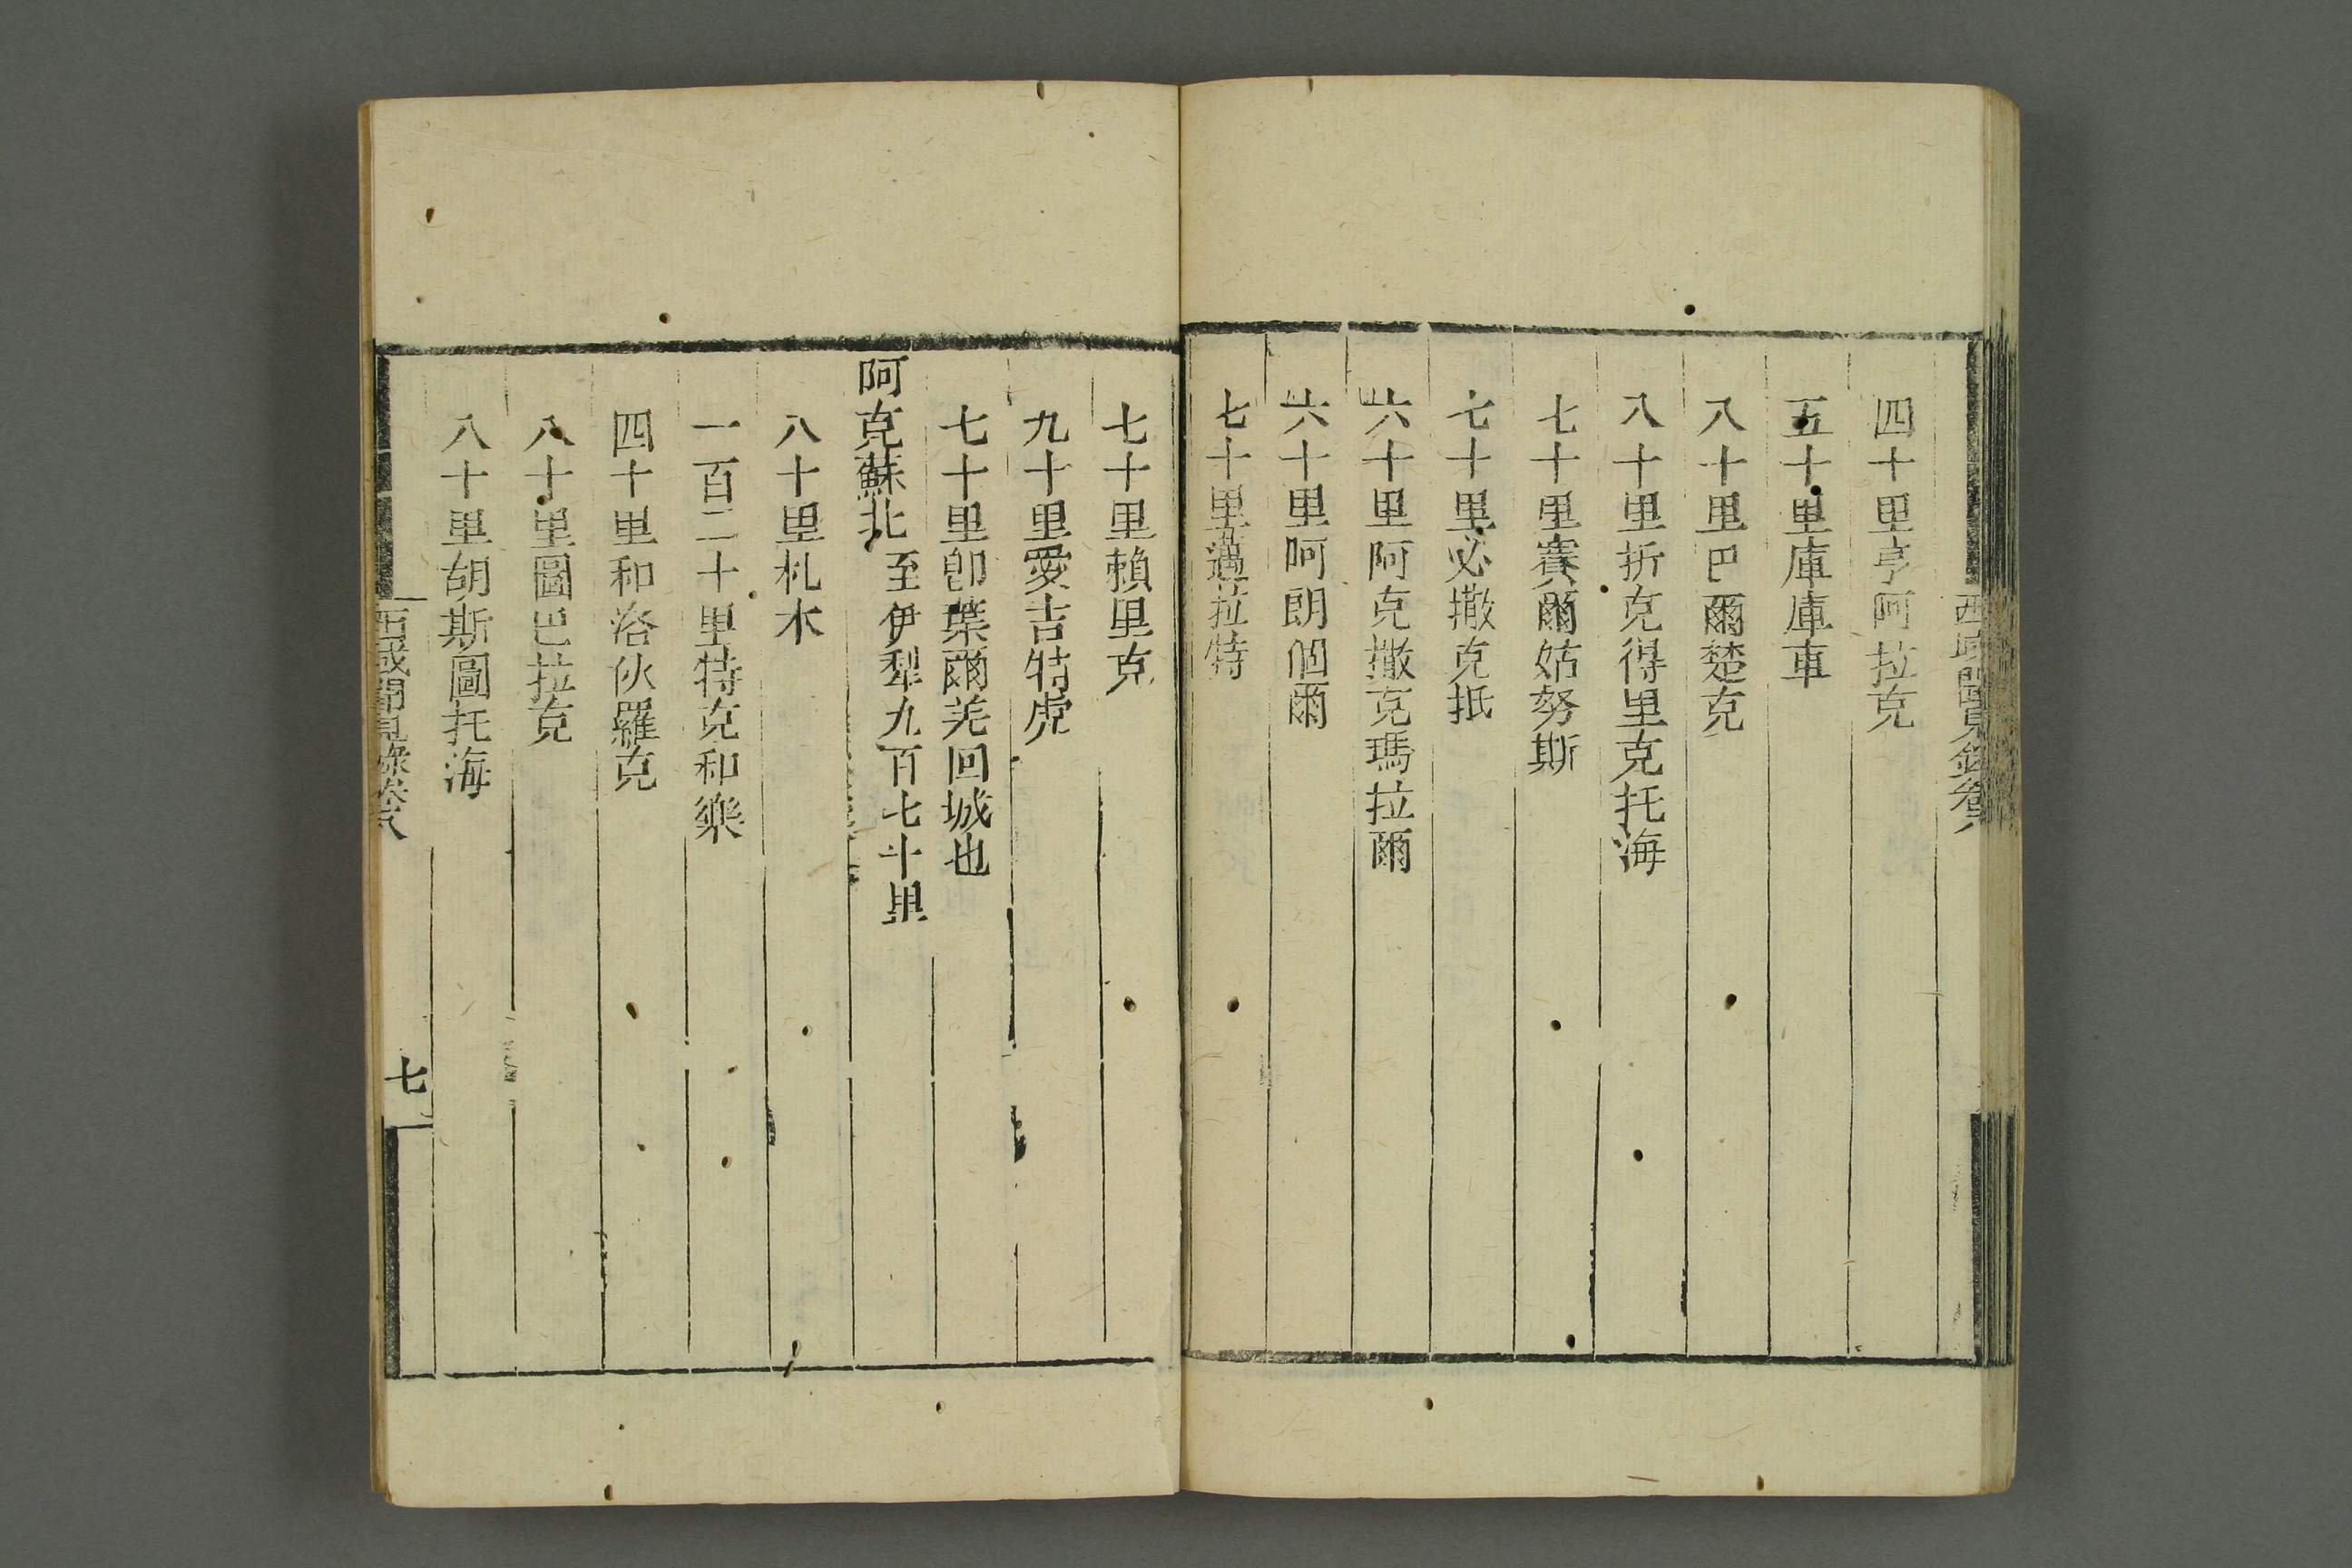 西域聞見錄卷八
四十里亨阿拉克
五十里庫庫車
八十里巴爾楚克
八十里折克得里克托海
七十里賽爾姑努斯
七十里必撒克抵
六十里阿克撒克瑪拉爾
六十里阿朗個爾
七十里邁拉特
七十里賴里克
九十里愛吉特虎
七十里卽葉爾羌回城也
阿克蘇北至伊犁九百七十里
八十里札木
一百二十里特克和樂
四十里和洛伙羅克
八十里圖巴拉克
八十里胡斯圖托海
西域聞見錄卷八
七